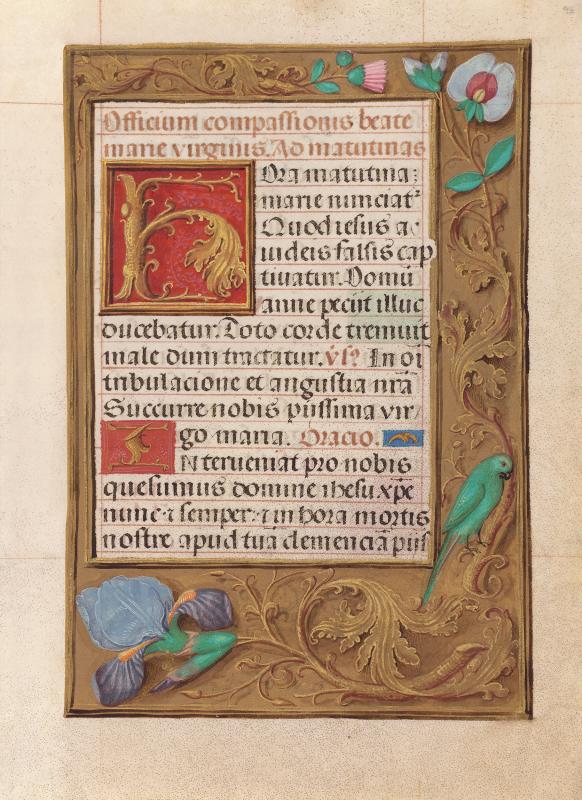 Officium compassionis beate
marie virginis. Ad matutinas
Hora matutina:
marie nunciat²
Quod iesus a
iudeis falsis cap
tivatur. Domū
anne pecut illuc
ducebatur. Toto corde tremuit
male dum tractatur. v̄s? In oī
tribulacione et angustia nrā
Succurre nobis piissima vir
go maria. Oracio.
Interueniat pro nobis
quesumus domine ihesu xp̄e
nunc ⁊ semper: ⁊ in hora mortis
nostre apud tuā clemenciā piis